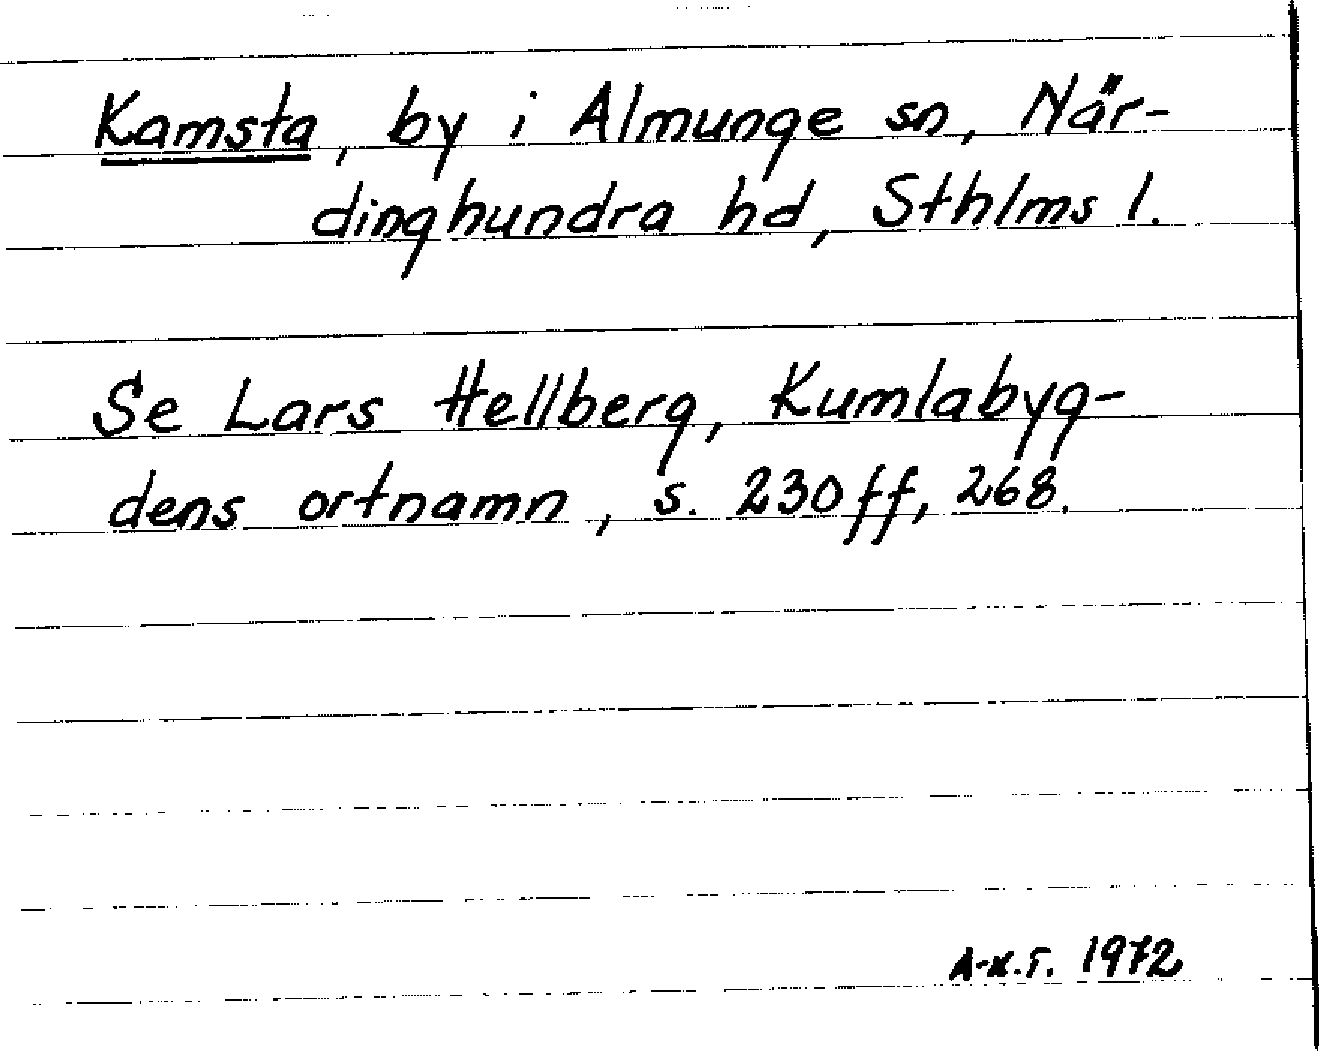 Kamsta, by i Almunge sn, När-
dinghundra hd, Sthlms l.
Se Lars Hellberg, Kumlabyg-
dens ortnamn, s. 230ff, 268.
A-K.T. 1972